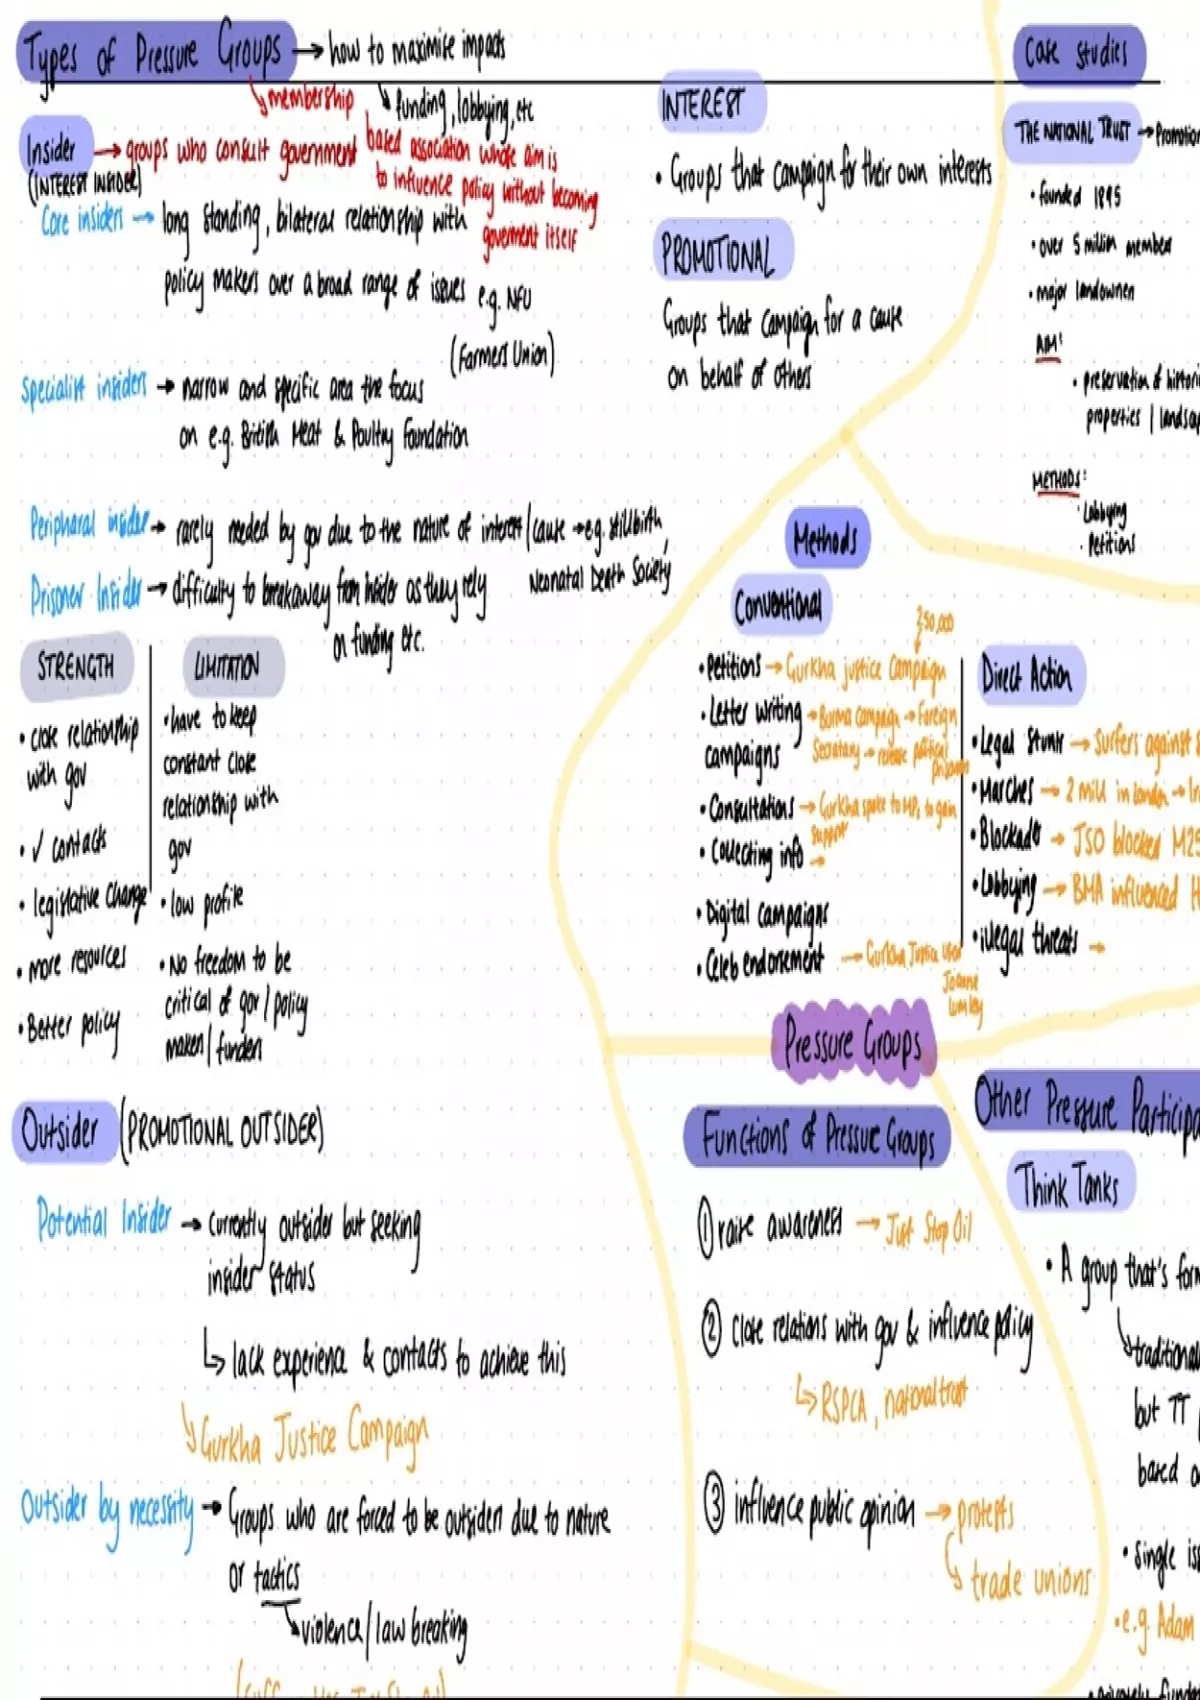 Types of Pressure Groups → how to maximise impacts
↳ membership
↳ funding, lobbying, etc
based association whose aim is
to influence policy without becoming
goverment itself
Insider → groups who consult government
(INTEREST INSIDER)
Core insiders → long standing, bilateral relationship with
policy makers over a broad range of issues e.g. NFU
(Farmers Union)
Specialist insiders → narrow and specific area the focus
on e.g. British Meat & Poultry Foundation
Peripheral insider → rarely needed by gov due to the nature of interest / cause → e.g. stillbirth,
Neonatal Death Society
Prisoner Insider → difficulty to breakaway from insider as they rely
on funding etc.
STRENGTH
• close relationship
with gov
• ✓ contacts
• legislative change
• more resources
• Better policy
LIMITATION
• have to keep
constant close
relationship with
gov
• low profile
• No freedom to be
critical of gov / policy
makers / funders
Outsider (PROMOTIONAL OUTSIDER)
Potential Insider → currently outsider but seeking
insider status
↳ lack experience & contacts to achieve this
↳ Gurkha Justice Campaign
Outsider by necessity → Groups who are forced to be outsiders due to nature
or tactics
↳ violence / law breaking
INTEREST
• Groups that campaign for their own interests
PROMOTIONAL
Groups that campaign for a cause
on behalf of others
Case studies
THE NATIONAL TRUST → Promotion
• founded 1895
• over 5 million members
• major landowners
AIM:
• preservation of histori
properties / landscap
METHODS:
• Lobbying
• Petitions
Methods
Conventional
250,000
• Petitions → Gurkha justice campaign
• Letter writing → Burma campaign → Foreign
campaigns Secretary → release political
prisoners
• Consultations → Gurkha spoke to MPs to gain
support
• Collecting info →
• Digital campaigns
• Celeb endorsement → Gurkha Justice used
Joanna
Lumley
Direct Action
• Legal stunts → Surfers against s
• Marches → 2 mill in London → Ir
• Blockades → JSO blocked M25
• Lobbying → BMA influenced H
• illegal threats →
Pressure Groups
Functions of Pressure Groups
① raise awareness → Just Stop Oil
② close relations with gov & influence policy
↳ RSPCA, national trust
③ influence public opinion → protests
↳ trade unions
Other Pressure Participa
Think Tanks
• A group that's form
↳ traditional
but TT
based o
• single iss
• e.g. Adam